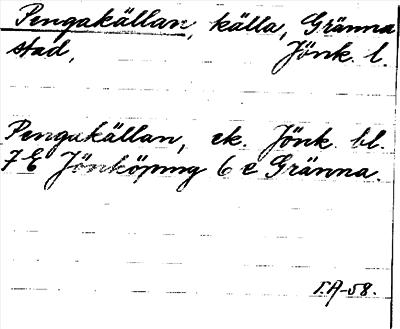 Pengakällan, källa, Gränna
stad, Jönk. l.
Pengakällan, ek. Jönk. bl.
7E Jönköping 6 e Gränna.
T.A-58.